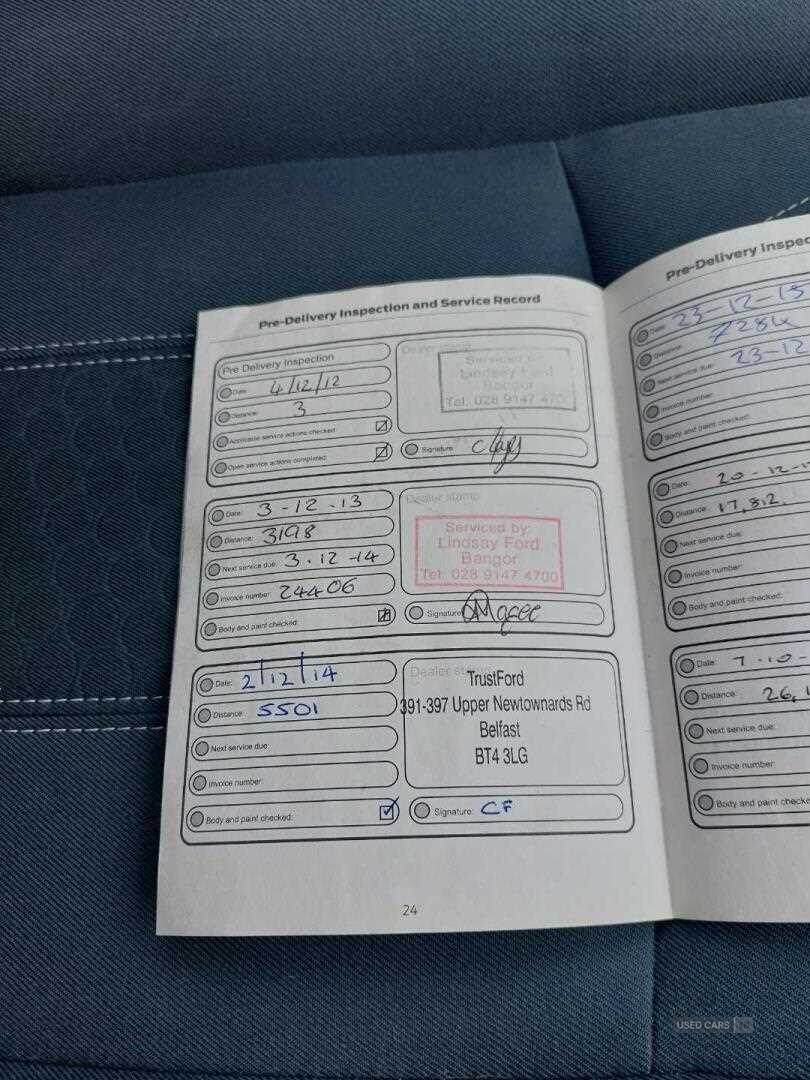 Pre-Delivery Inspection and Service Record
Pre Delivery Inspection
Date: 4/12/12
Distance: 3
Applicable service actions checked:
Open service actions completed:
Dealer stamp
Serviced by:
Lindsay Ford
Bangor
Tel: 028 9147 4700
Signature:
Date: 3-12.13
Distance: 3198
Next service due: 3.12-14
Invoice number: 24406
Body and paint checked:
Dealer stamp
Serviced by:
Lindsay Ford
Bangor
Tel: 028 9147 4700
Signature:
Date: 2/12/14
Distance: 5501
Next service due:
Invoice number:
Body and paint checked:
Dealer stamp
TrustFord
391-397 Upper Newtownards Rd
Belfast
BT4 3LG
Signature: CF
24
Pre-Delivery Inspec
Date: 23-12-15
Distance:
Next service due: 23-12
Invoice number:
Body and paint checked:
Date: 20-12-1
Distance: 17,812
Next service due:
Invoice number:
Body and paint checked:
Date: 7.10-
Distance: 26,
Next service due:
Invoice number:
Body and paint checke
USED CARS NI